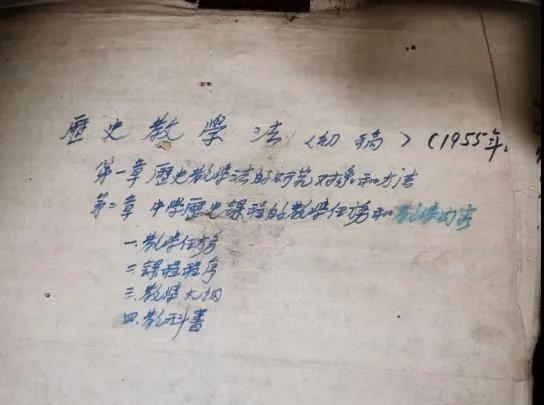 歷史教學法（初稿）（1955年.
第一章 歷史教學法的研究对象和方法
第二章 中学歷史課程的教学任务和教学内容
一.教学任务
二.課程程序
三.教学大纲
四.教科書